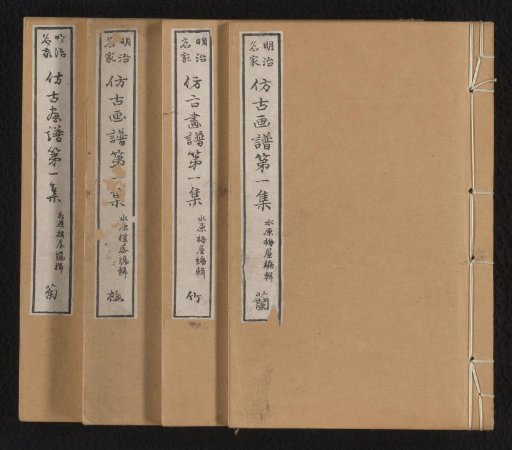 明治
名家
仿古画譜第一集
水原梅屋編輯
蘭
明治
名家
仿古畫譜第一集
水原梅屋編輯
竹
明治
名家
仿古画譜第一集
水原楳屋編輯
梅
明治
名家
仿古画譜第一集
水原梅屋編輯
菊